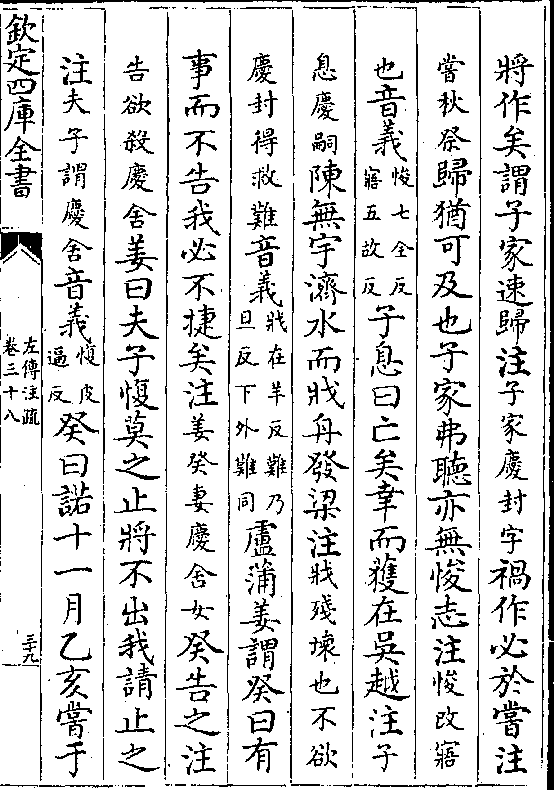 將作矣謂子家速歸注子家慶封字禍作必於嘗注
嘗秋祭歸猶可及也子家弗聽亦無悛志注悛改寤
也音義悛七全反寤五故反子息曰亡矣幸而獲在吳越注子
息慶嗣陳無宇濟水而戕舟發梁注戕殘壞也不欲
慶封得救難音義戕在羊反難乃旦反下外難同盧蒲姜謂癸曰有
事而不告我必不捷矣注姜癸妻慶舍女癸告之注
告欲殺慶舍姜曰夫子愎莫之止將不出我請止之
注夫子謂慶舍音義愎皮逼反癸曰諾十一月乙亥嘗于
欽定四庫全書
左傳注疏
卷三十八
三十九